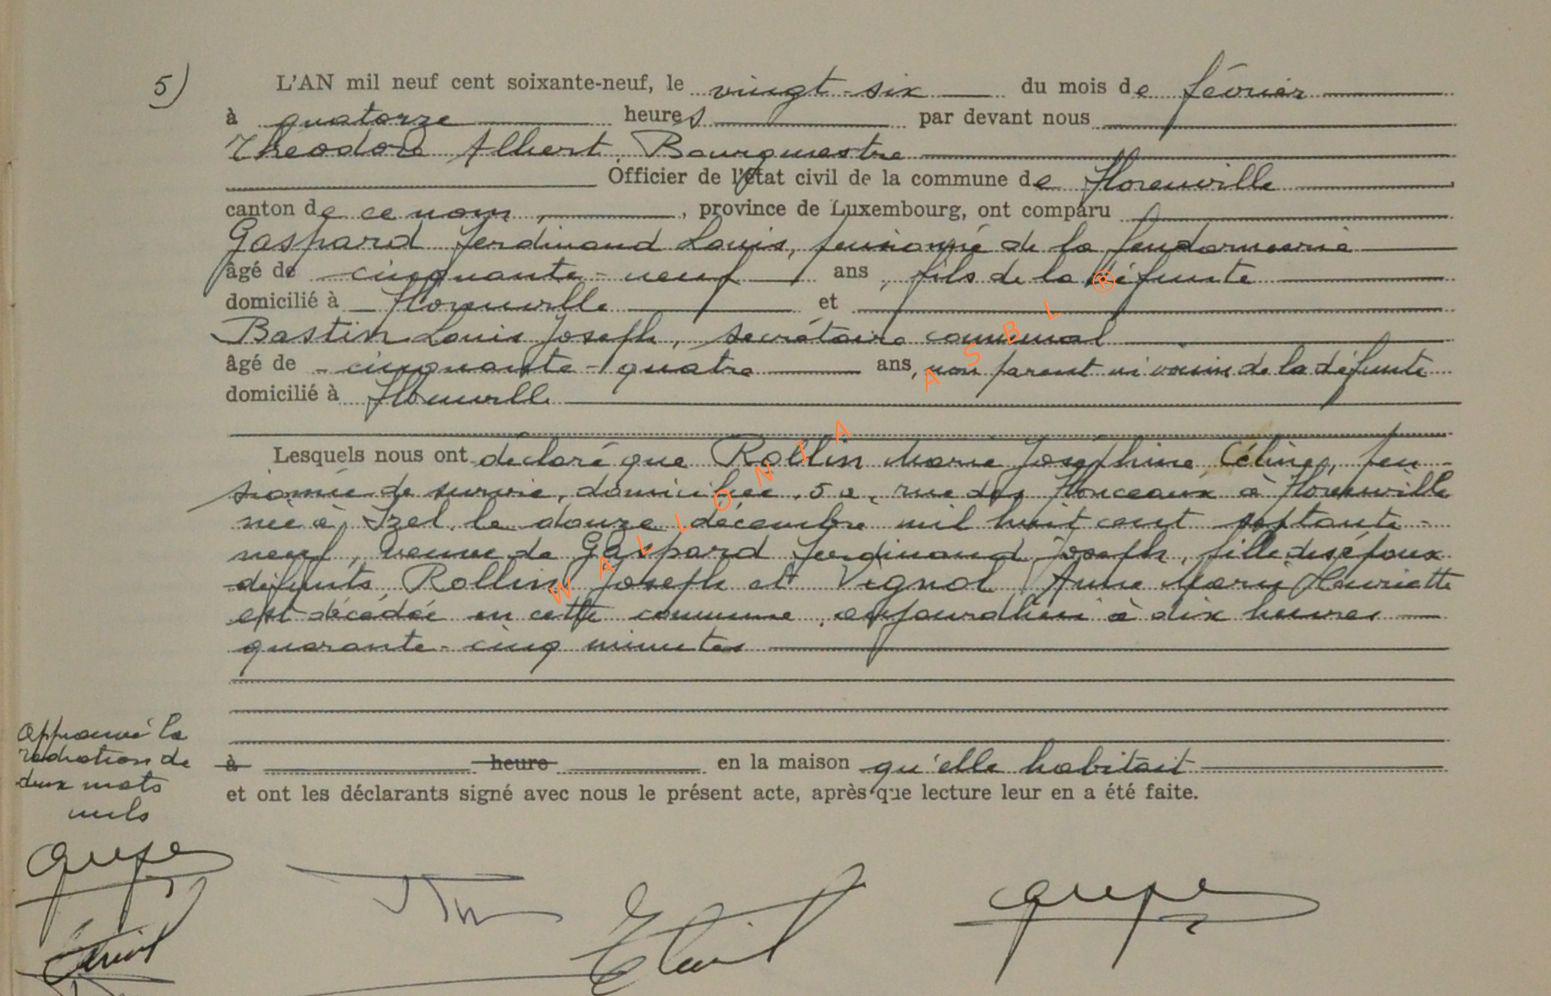 5) L'AN mil neuf cent soixante-neuf, le vingt-six du mois de février
à quatorze heures par devant nous
Théodore Albert, Bourgmestre
Officier de l'état civil de la commune de Florenville
canton de ce nom, province de Luxembourg, ont comparu
Gaspard Ferdinand Louis, pensionné de la gendarmerie
âgé de cinquante-neuf ans, fils de la défunte
domicilié à Florenville et
Bastin Louis Joseph, secrétaire communal
âgé de cinquante-quatre ans, non parent ni voisin de la défunte
domicilié à Florenville
Lesquels nous ont déclaré que Rollin Marie Joséphine Céline, pen-
sionnée de survie, domiciliée 50, rue des Honceaux à Florenville
née à Izel le douze décembre mil huit cent septante-
neuf, veuve de Gaspard Ferdinand Joseph, fille des époux
défunts Rollin Joseph et Vignol Anne Marie Henriette
est décédée en cette commune, aujourd'hui à dix heures
quarante-cinq minutes
à heure en la maison qu'elle habitait
et ont les déclarants signé avec nous le présent acte, après que lecture leur en a été faite.
Approuvé la
radiation de
deux mots
nuls
WALLONIA ASBL ®